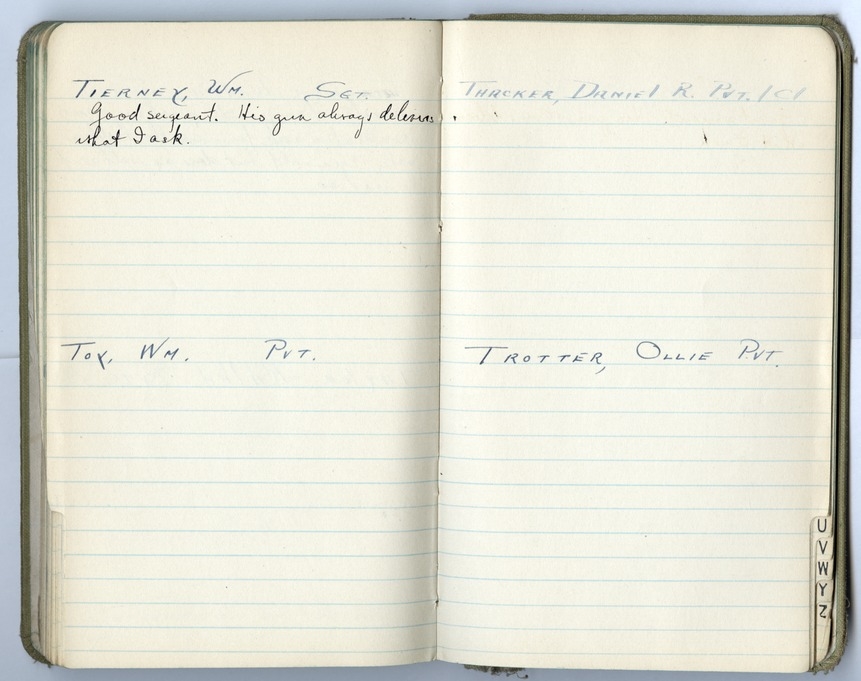 TIERNEY, WM. SGT.
Good sergeant. His gun always delivers
what I ask.
TOY, WM. PVT.
THACKER, DANIEL R. PVT. 1Cl
TROTTER, OLLIE PVT.
U
V
W
Y
Z